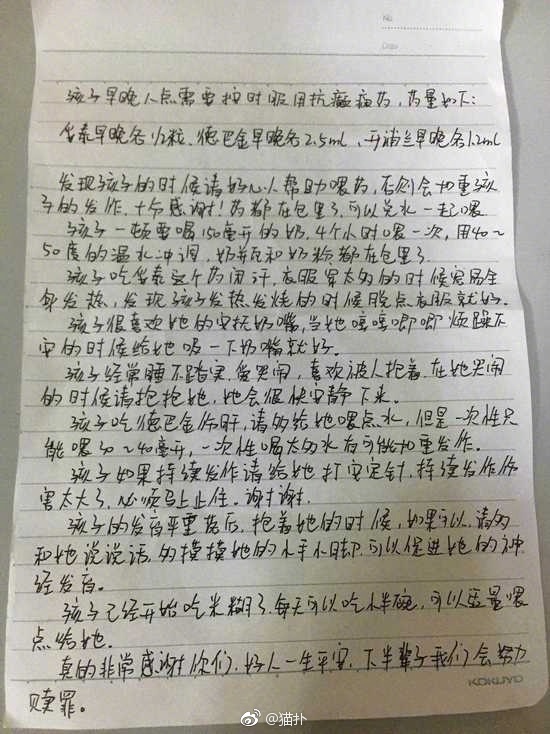 No
Date
孩子早晚八点需要按时服用抗癫痫药,药量如下:
妥泰早晚各1/2粒、德巴金早晚各2.5ml、开浦兰早晚各1.2ml
发现孩子的时候请好心人帮助喂药,否则会加重孩
子的发作,十分感谢!药都在包里了,可以兑水一起喂
孩子一顿要喝150毫升的奶,4个小时喂一次,用40~
50度的温水冲调,奶瓶和奶粉都在包里了
孩子吃妥泰这个药闭汗,衣服穿太多的时候容易全
身发热,发现孩子发热发烧的时候脱点衣服就好.
孩子很喜欢她的安抚奶嘴,当她哼哼唧唧烦躁不
安的时候给她吸一下奶嘴就好.
孩子经常睡不踏实,爱哭闹,喜欢被人抱着,在她哭闹
的时候请抱抱她,她会很快安静下来。
孩子吃德巴金伤肝,请多给她喂点水,但是一次性只
能喂30~40毫升,一次性喝太多水有可能加重发作。
孩子如果持续发作请给她打安定针,持续发作伤
害太大了,必须马上止住。谢谢谢.
孩子的发育严重落后,抱着她的时候,如果可以,请多
和她说说话,多摸摸她的小手小脚,可以促进她的神
经发育。
孩子已经开始吃米糊了,每天可以吃小半碗,可以适量喂
点给她.
真的非常感谢你们,好人一生平安,下半辈子我们会努力
赎罪。
KOKUYO
@猫扑